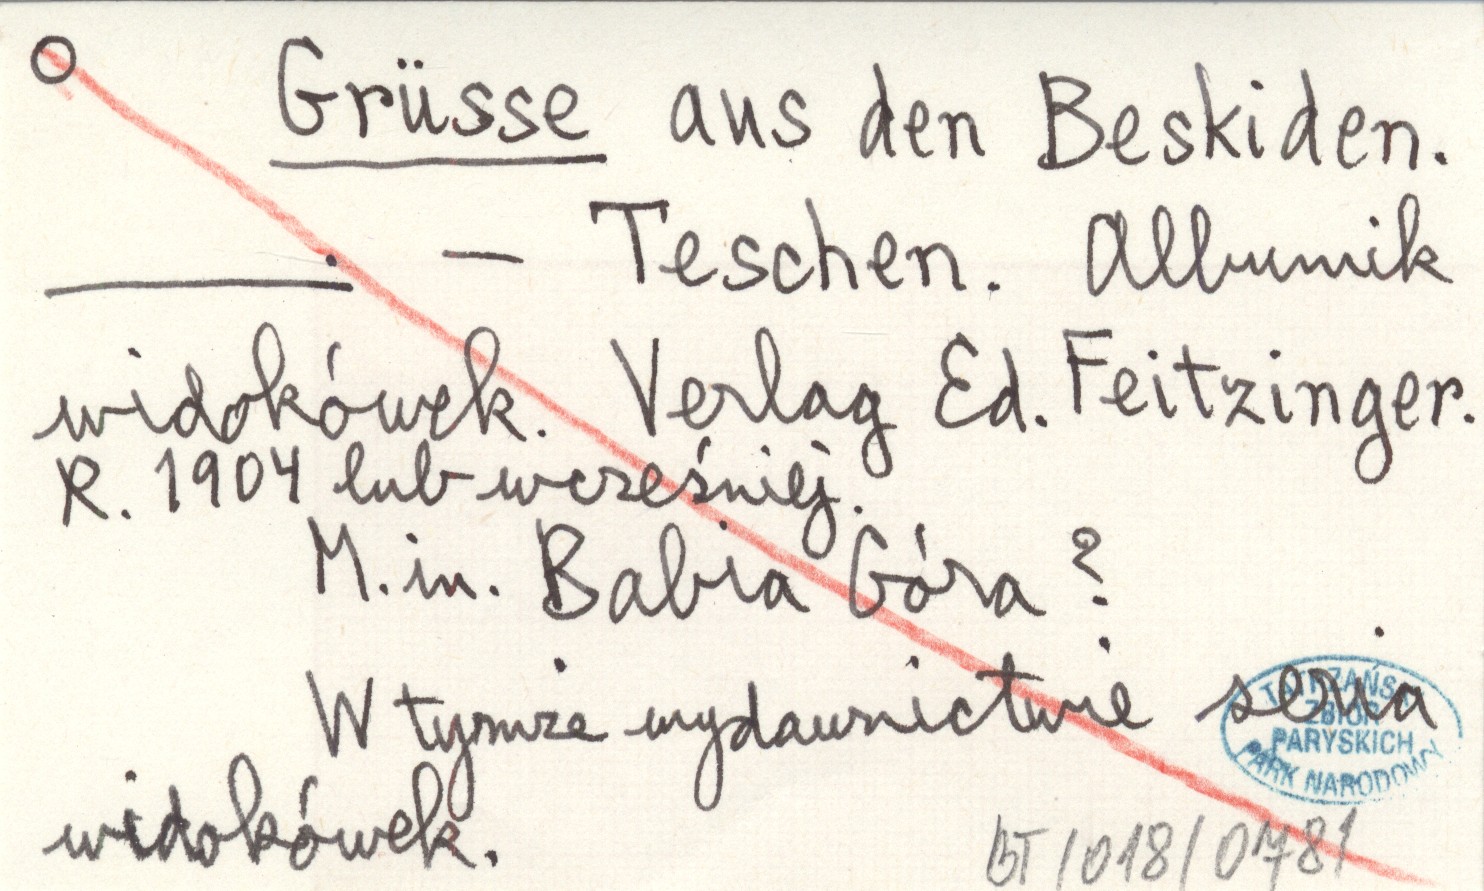 O Grüsse aus den Beskiden.
. — Teschen. Albumik
widokówek. Verlag Ed. Feitzinger.
R. 1904 lub wcześniej.
M. in. Babia Góra?
W tymże wydawnictwie seria
widokówek.
TATRZAŃSKI
ZBIORY
PARYSKICH
PARK NARODOWY
BT/018/0781